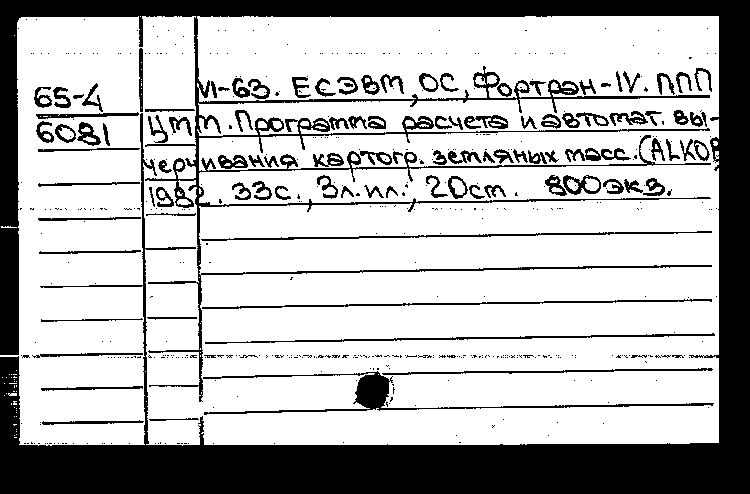 65-4 VI-63. ЕСЭВМ, ОС, Фортран-IV. ППП
6081 ЦММ. Программа расчета и автомат. вы-
черчивания картогр. земляных масс. (ALKOB
1982. 33с., 3л.ил., 20см. 800экз.